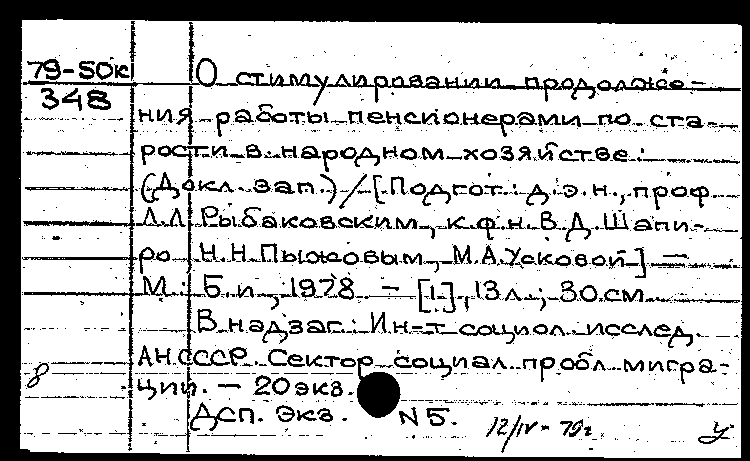 79-50к
348
О стимулировании продолже-
ния работы пенсионерами по ста-
рости в народном хозяйстве:
(Докл. зап.) / [Подгот.: д.э.н., проф.
Л.Л. Рыбаковским, к.ф.н. В.Д. Шапи-
ро, Н.Н. Пыжовым, М.А. Усковой] —
М.: Б.и., 1978. - [1], 13 л.; 30 см.
В надзаг.: Ин-т социол. исслед.
АН СССР. Сектор социал. пробл. мигра-
8 ции. - 20 экз.
ДСП. Экз. N 5.
12/IV - 79 г.